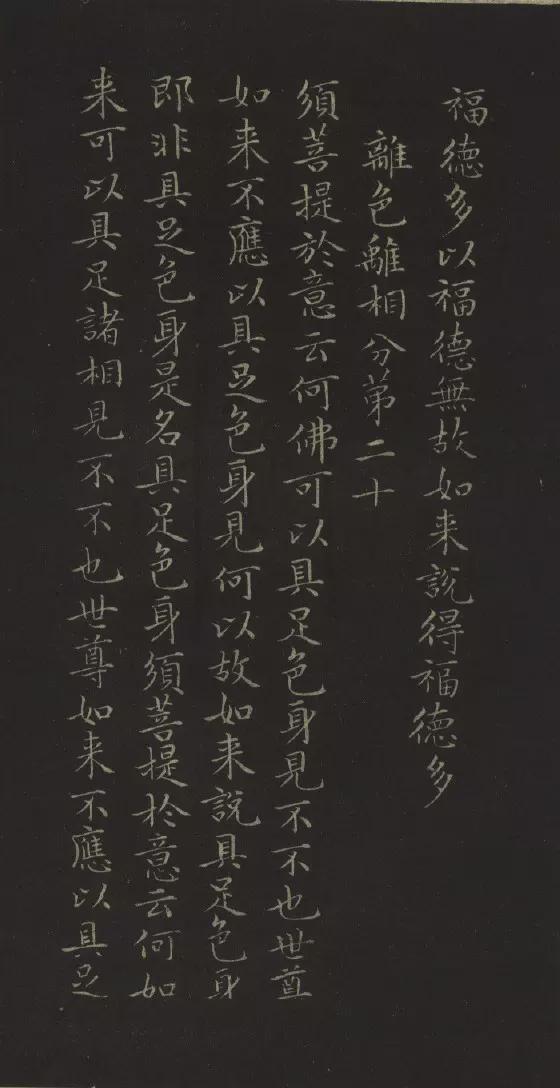 福德多以福德無故如来說得福德多
離色離相分第二十
須菩提於意云何佛可以具足色身見不不也世尊
如来不應以具足色身見何以故如来說具足色身
即非具足色身是名具足色身須菩提於意云何如
来可以具足諸相見不不也世尊如来不應以具足